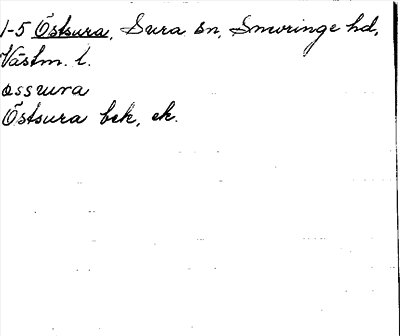 1-5 Östsura, Sura sn, Snevringe hd,
Västm. l.
ossura
Östsura bek, ek.